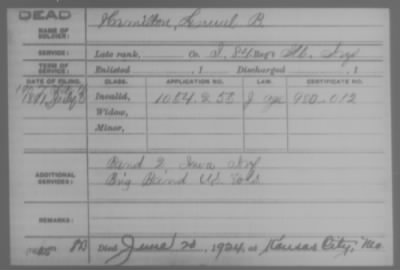 DEAD
NAME OF SOLDIER: Hamilton, Lemuel B.
SERVICE: Late rank, Co. I, 84 Reg't Ills. Inf
TERM OF SERVICE: Enlisted , 1 Discharged , 1
DATE OF FILING. CLASS. APPLICATION NO. LAW. CERTIFICATE NO.
1891, July Invalid, 1054258 J 980-012
Widow,
Minor,
ADDITIONAL SERVICES: Band 2 Iowa Inf
Brig Band US Vols
REMARKS:
Died June 1924, at Kansas City, Mo.